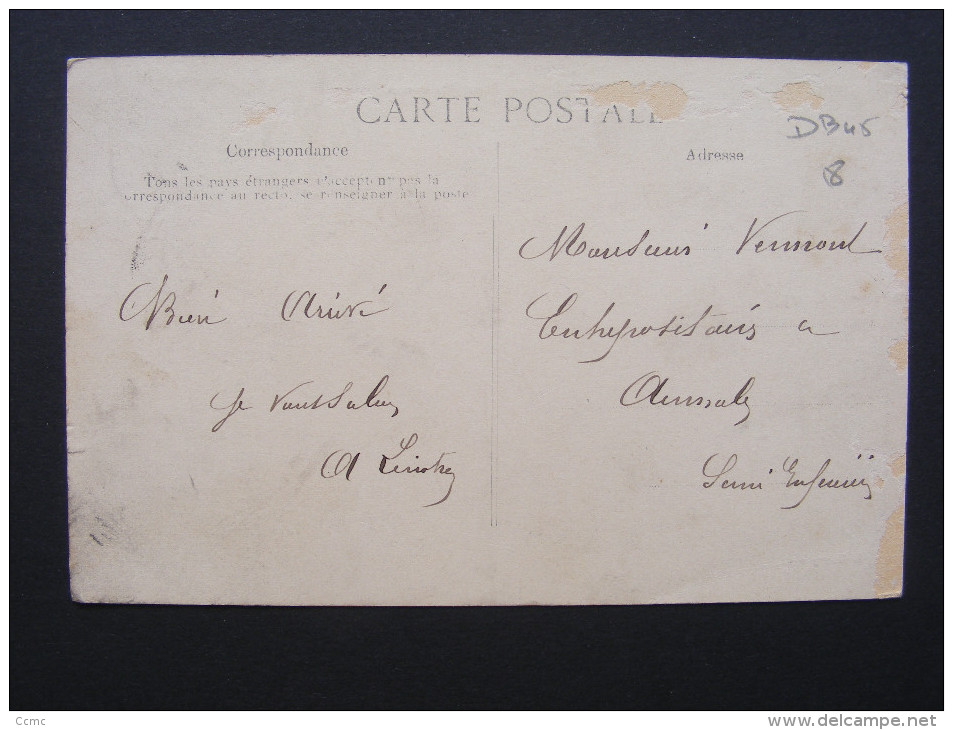 CARTE POSTALE
DB45
8
Correspondance
Adresse
Tous les pays étrangers n'acceptent pas la
correspondance au recto, se renseigner à la poste
Monsieur Vermont
Entrepositaire a
Aumale
Seine Inférieure
Bien Arivé
Je vous salue
A
Ccmc
www.delcampe.net